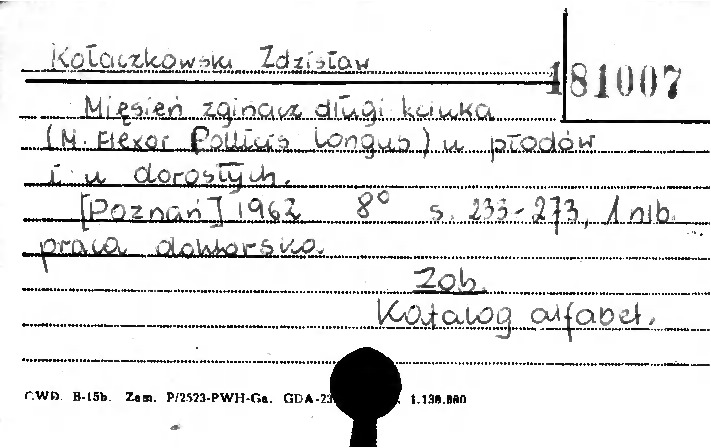 Kołaczkowski Zdzisław
181007
Mięsień zginacz długi kciuka
(M. Flexor Pollicis Longus) u płodów
i u dorosłych.
[Poznań] 1962 8° s. 233-273, 1 nlb.
praca doktorska.
Zob.
Katalog alfabet.
CWD. B-15b. Zam. P/2523-PWH-Ga. GDA-23